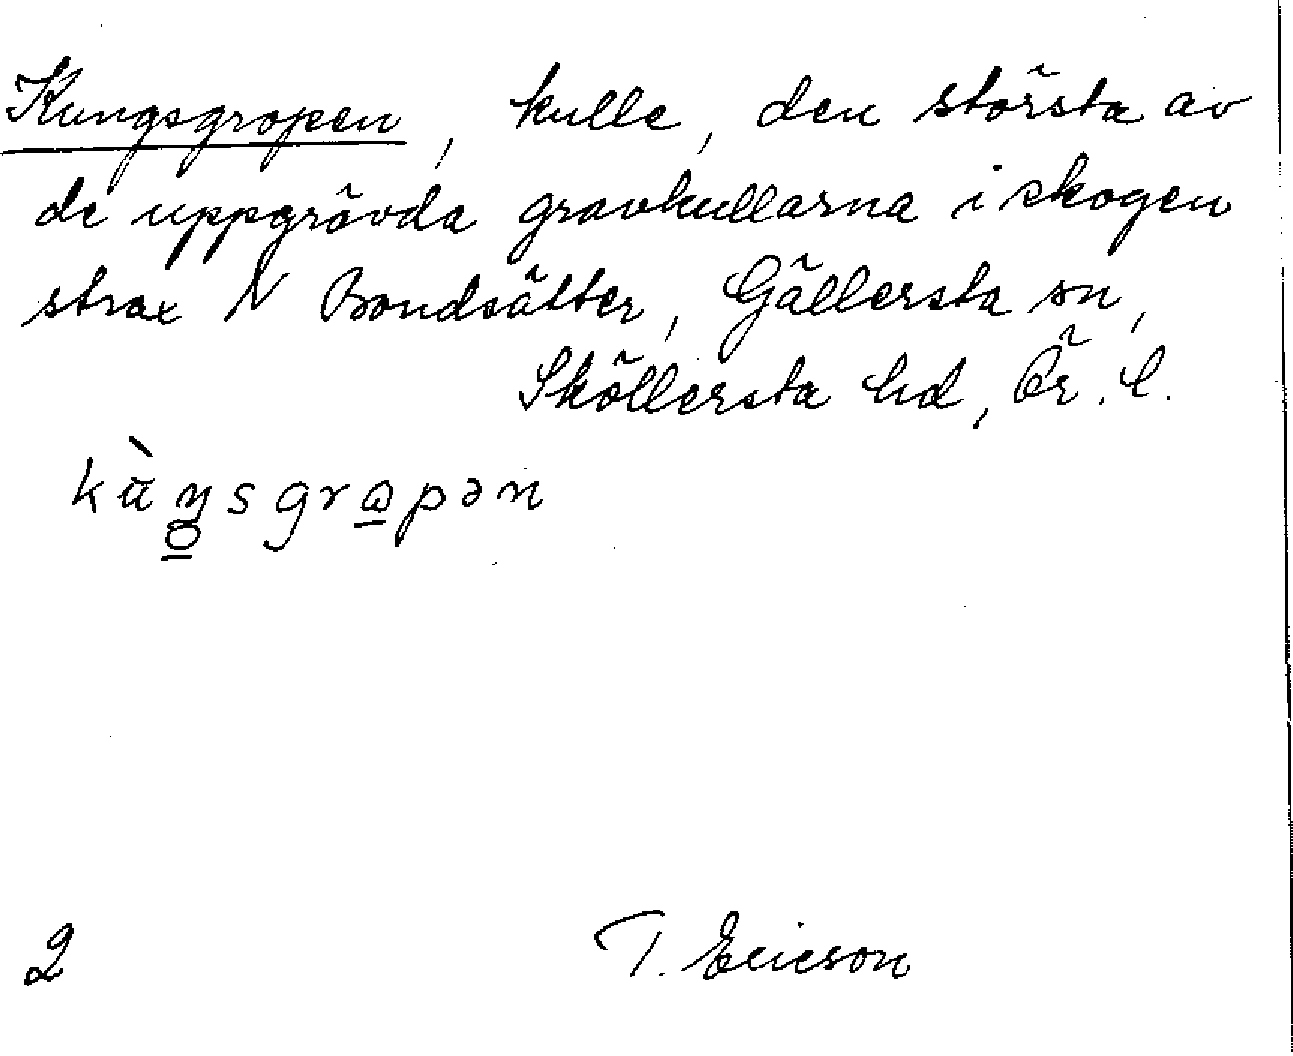 Kungsgropen, kulle, den största av
de uppgrävda gravkullarna i skogen
strax N Bondsätter, Gällersta sn,
Sköllersta hd, Ör. l.
kùŋsgrɷpən
2 T. Ericson